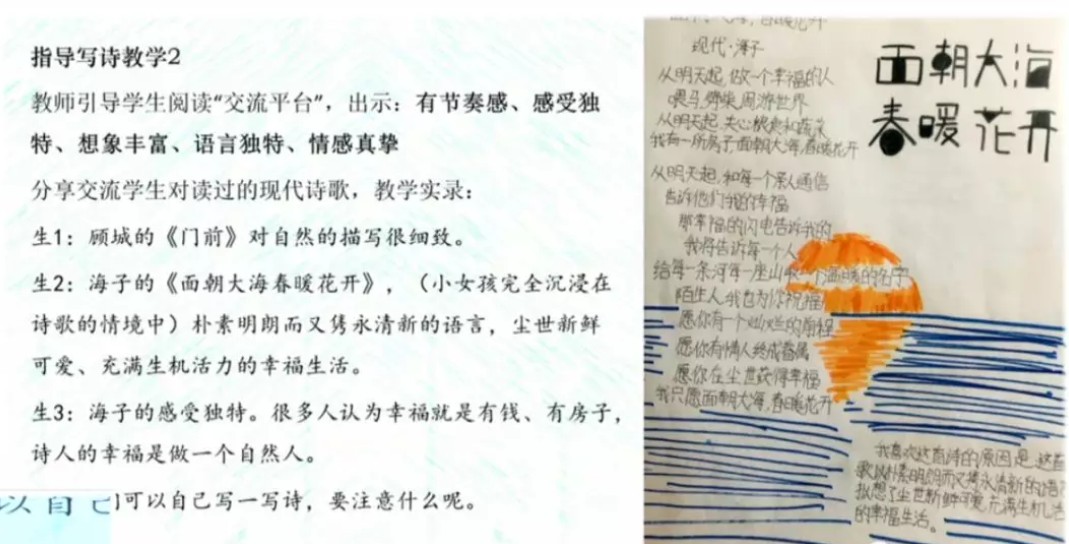 指导写诗教学2
教师引导学生阅读“交流平台”，出示：有节奏感、感受独
特、想象丰富、语言独特、情感真挚
分享交流学生对读过的现代诗歌，教学实录：
生1：顾城的《门前》对自然的描写很细致。
生2：海子的《面朝大海春暖花开》，（小女孩完全沉浸在
诗歌的情境中）朴素明朗而又隽永清新的语言，尘世新鲜
可爱、充满生机活力的幸福生活。
生3：海子的感受独特。很多人认为幸福就是有钱、有房子，
诗人的幸福是做一个自然人。
以自己
们可以自己写一写诗，要注意什么呢。
面朝大海
春暖花开
现代·海子
从明天起，做一个幸福的人
喂马，劈柴，周游世界
从明天起，关心粮食和蔬菜
我有一所房子，面朝大海，春暖花开
从明天起，和每一个亲人通信
告诉他们我的幸福
那幸福的闪电告诉我的
我将告诉每一个人
给每一条河每一座山取一个温暖的名字
陌生人，我也为你祝福
愿你有一个灿烂的前程
愿你有情人终成眷属
愿你在尘世获得幸福
我只愿面朝大海，春暖花开
我喜欢这首诗的原因是，这首
歌以朴素明朗而又隽永清新的语
拟想了尘世新鲜可爱，充满生机活
的幸福生活。